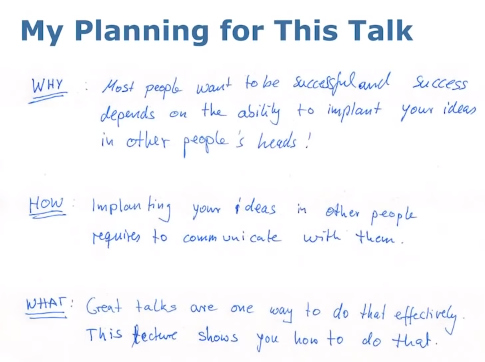 My Planning for This Talk
WHY : Most people want to be successful and success
depends on the ability to implant your ideas
in other people's heads!
HOW : Implanting your ideas in other people
requires to communicate with them.
WHAT : Great talks are one way to do that effectively.
This lecture shows you how to do that.